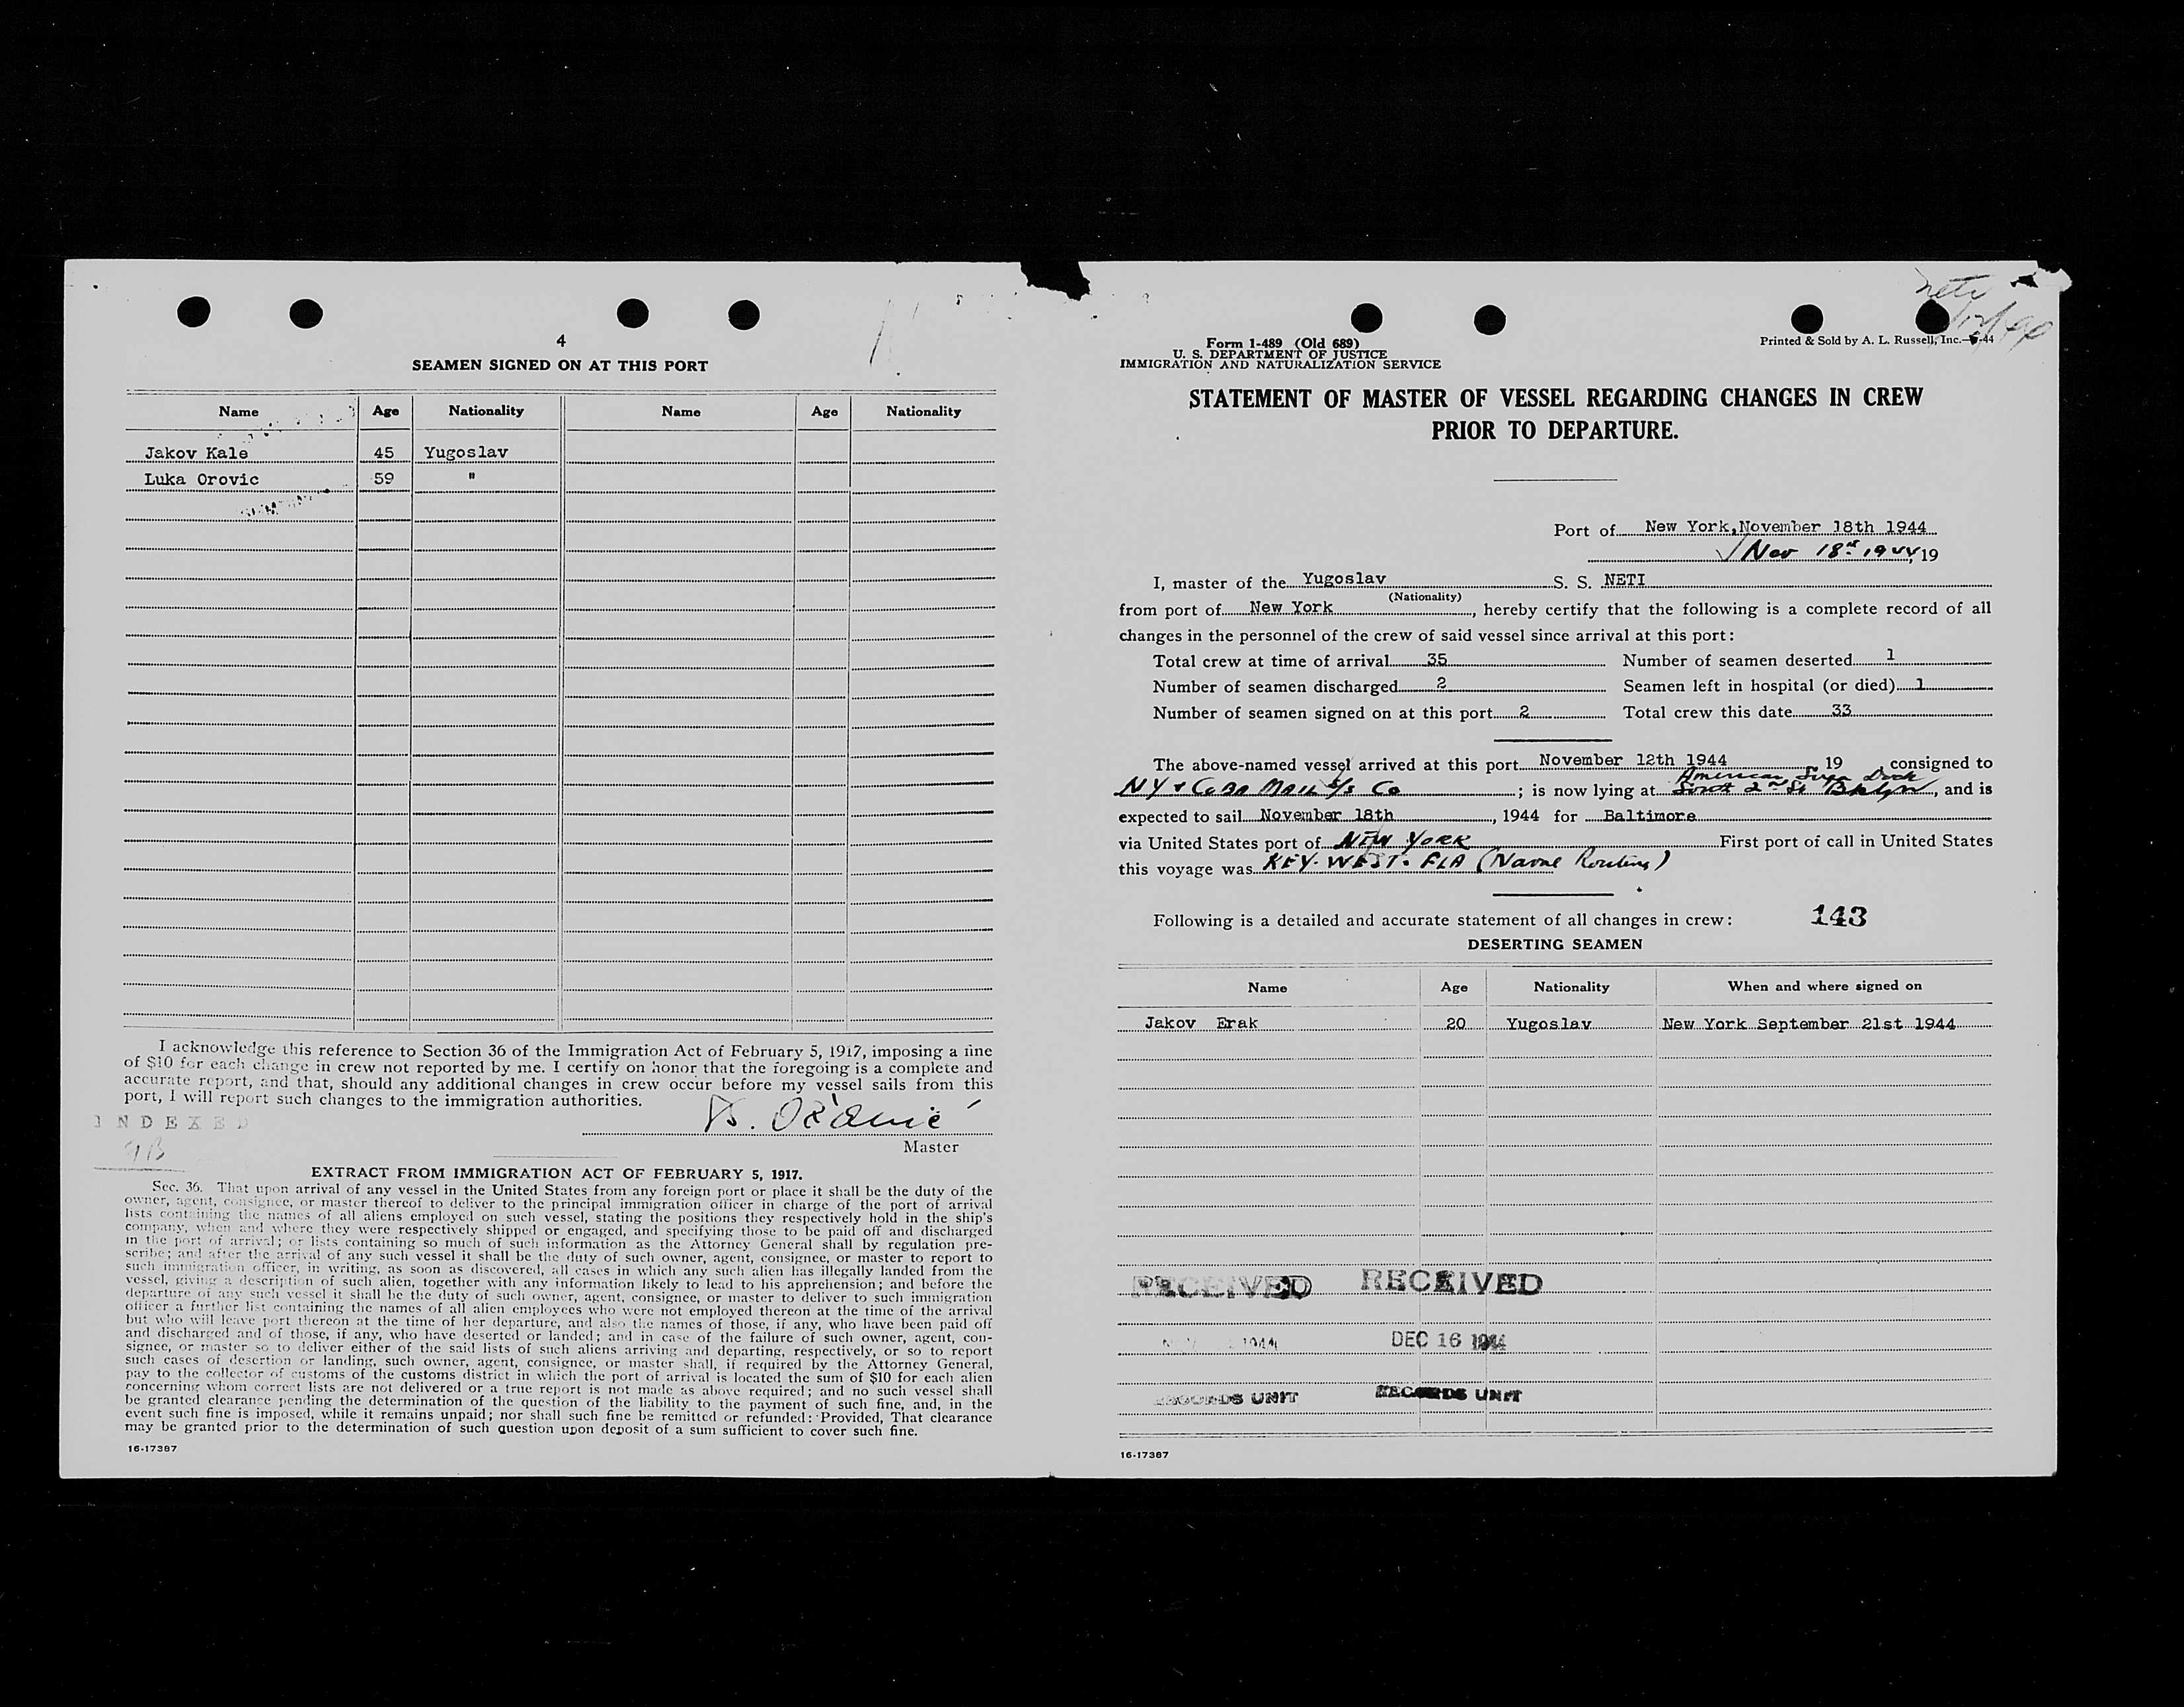 4
SEAMEN SIGNED ON AT THIS PORT
Name Age Nationality Name Age Nationality
Jakov Kale 45 Yugoslav
Luka Orovic 59 "
I acknowledge this reference to Section 36 of the Immigration Act of February 5, 1917, imposing a fine
of $10 for each change in crew not reported by me. I certify on honor that the foregoing is a complete and
accurate report, and that, should any additional changes in crew occur before my vessel sails from this
port, I will report such changes to the immigration authorities.
INDEXED
Master
EXTRACT FROM IMMIGRATION ACT OF FEBRUARY 5, 1917.
Sec. 36. That upon arrival of any vessel in the United States from any foreign port or place it shall be the duty of the
owner, agent, consignee, or master thereof to deliver to the principal immigration officer in charge of the port of arrival
lists containing the names of all aliens employed on such vessel, stating the positions they respectively hold in the ship's
company, when and where they were respectively shipped or engaged, and specifying those to be paid off and discharged
in the port of arrival; or lists containing so much of such information as the Attorney General shall by regulation pre-
scribe; and after the arrival of any such vessel it shall be the duty of such owner, agent, consignee, or master to report to
such immigration officer, in writing, as soon as discovered, all cases in which any such alien has illegally landed from the
vessel, giving a description of such alien, together with any information likely to lead to his apprehension; and before the
departure of any such vessel it shall be the duty of such owner, agent, consignee, or master to deliver to such immigration
officer a further list containing the names of all alien employees who were not employed thereon at the time of the arrival
but who will leave port thereon at the time of her departure, and also the names of those, if any, who have been paid off
and discharged and of those, if any, who have deserted or landed; and in case of the failure of such owner, agent, con-
signee, or master so to deliver either of the said lists of such aliens arriving and departing, respectively, or so to report
such cases of desertion or landing, such owner, agent, consignee, or master shall, if required by the Attorney General,
pay to the collector of customs of the customs district in which the port of arrival is located the sum of $10 for each alien
concerning whom correct lists are not delivered or a true report is not made as above required; and no such vessel shall
be granted clearance pending the determination of the question of the liability to the payment of such fine, and, in the
event such fine is imposed, while it remains unpaid; nor shall such fine be remitted or refunded: Provided, That clearance
may be granted prior to the determination of such question upon deposit of a sum sufficient to cover such fine.
16-17387
Neti
Form 1-489 (Old 689)
U. S. DEPARTMENT OF JUSTICE
IMMIGRATION AND NATURALIZATION SERVICE
Printed & Sold by A. L. Russell, Inc.
STATEMENT OF MASTER OF VESSEL REGARDING CHANGES IN CREW
PRIOR TO DEPARTURE.
Port of New York, November 18th 1944
Nov 18th 1944, 19
I, master of the Yugoslav S. S. NETI
(Nationality)
from port of New York, hereby certify that the following is a complete record of all
changes in the personnel of the crew of said vessel since arrival at this port:
Total crew at time of arrival 35 Number of seamen deserted 1
Number of seamen discharged 2 Seamen left in hospital (or died) 1
Number of seamen signed on at this port 2 Total crew this date 33
The above-named vessel arrived at this port November 12th 1944, 19 consigned to
American Dock
NY & Cuba Mail S/S Co; is now lying at South 2nd St Bklyn, and is
expected to sail November 18th, 1944 for Baltimore
via United States port of NEW YORK First port of call in United States
this voyage was KEY. WEST. FLA (Naval Routing)
Following is a detailed and accurate statement of all changes in crew: 143
DESERTING SEAMEN
Name Age Nationality When and where signed on
Jakov Erak 20 Yugoslav New York September 21st 1944
RECEIVED RECEIVED
1944 DEC 16 1944
RECORDS UNIT RECORDS UNIT
16-17387